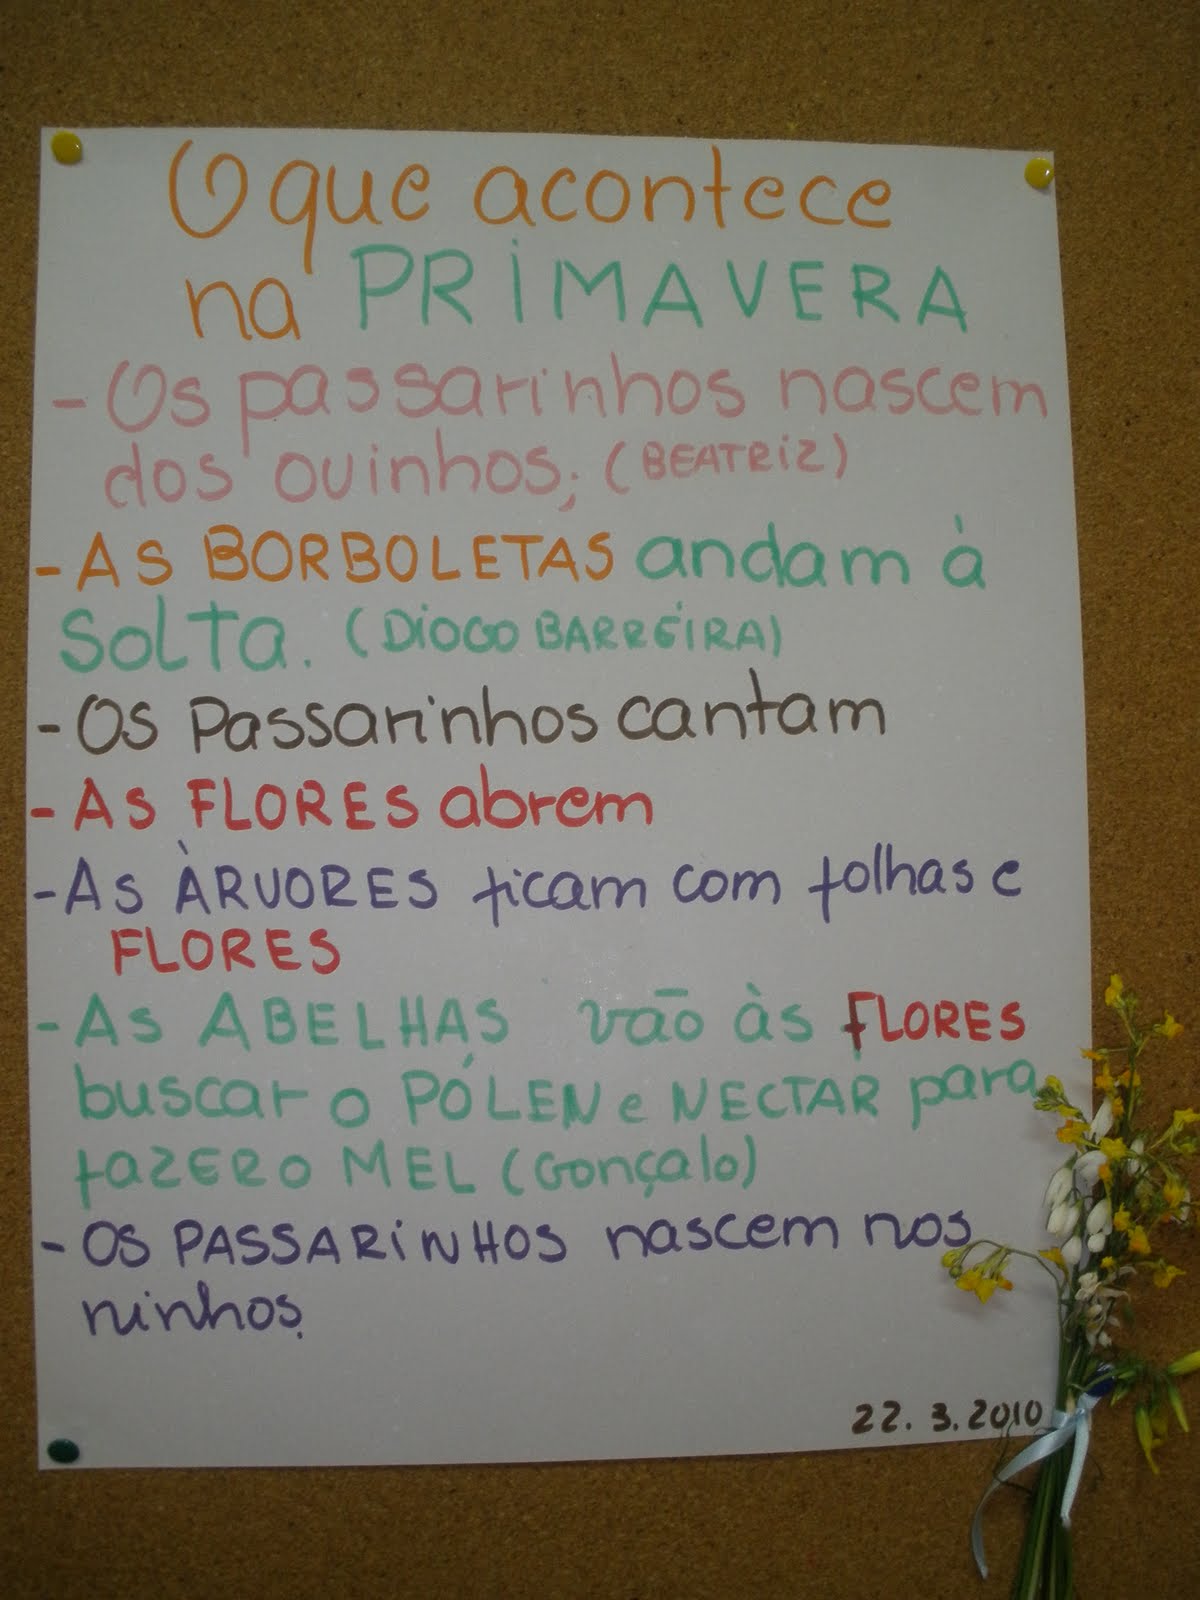 O que acontece
na PRIMAVERA
- Os passarinhos nascem
dos ovinhos; (BEATRIZ)
- AS BORBOLETAS andam à
SOLTA. (DIOGO BARREIRA)
- Os Passarinhos cantam
- AS FLORES abrem
- AS ÀRVORES ficam com folhas e
FLORES
- AS ABELHAS vão às FLORES
buscar o PÓLEN e NECTAR para
fazer o MEL (Gonçalo)
- OS PASSARINHOS nascem nos
ninhos.
22.3.2010